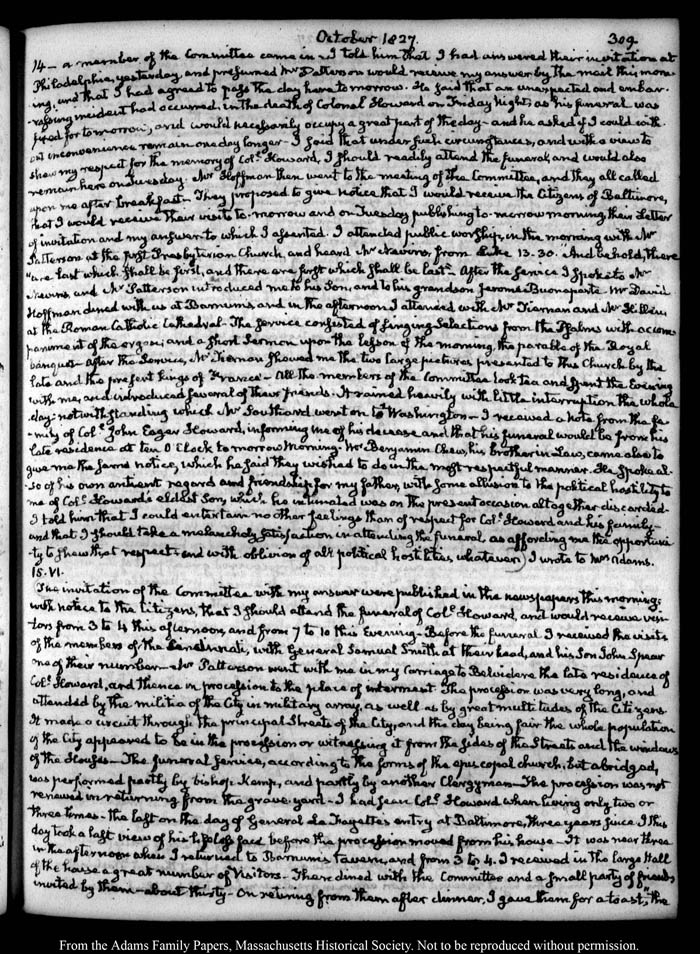 October 1827.
309
14 — a member of the Committee came in — I told him that I had answered their invitation at
Philadelphia, yesterday, and presumed Mr Patterson would receive my answer by the mail this morn-
ing, and that I had agreed to pass the day here to-morrow. He said that an unexpected and embar-
rassing incident had occurred, in the death of Colonel Howard on Friday Night; as his funeral was
fixed for to-morrow, and would necessarily occupy a great part of the day — and he asked if I could with-
out inconvenience remain one day longer — I said that under such circumstances, and with a view to
shew my respect for the memory of Col. Howard, I should readily attend the funeral, and would also
remain here on Tuesday. Mr Hoffman then went to the meeting of the Committee, and they all called
upon me after breakfast — They proposed to give notice that I would receive the Citizens of Baltimore,
that I would receive their visits to-morrow and on Tuesday, publishing to-morrow morning, their Letter
of invitation and my answer to which I assented. I attended public worship, in the morning with Mr
Patterson at the first Presbyterian Church, and heard Mr Nevins, from Luke 13.30. And behold, there
"are last which shall be first, and there are first which shall be last — After the service I spoke to Mr
Nevins, and Mr Patterson introduced me to his Son, and to his grandson Jerome Buonaparte. Mr David
Hoffman dined with us at Barnum's and in the afternoon I attended with Mr Tiernan and Mr
at the Roman Catholic Cathedral — The service consisted of singing Selections from the Psalms with accom-
paniment of the organ; and a short Sermon upon the lesson of the morning, the parable of the Royal
banquet — After the Service, Mr Tiernan showed me the two large pictures presented to this Church by the
late and the present kings of France — All the members of the Committee took tea and spent the Evening
with me, and introduced several of their friends. It rained heavily with little interruption the whole
day: notwithstanding which Mr Southard went on to Washington — I received a Note from the fa-
mily of Col. John Eager Howard, informing me of his decease and that his funeral would be from his
late residence at ten O'Clock to morrow Morning. Mr Benjamin Chew, his brother in Law, came also to
give me the same notice, which he said they wished to do in the most respectful manner. He spoke al-
so of his own antient regard and friendship for my father, with some allusion to the political hostility to
me of Col. Howard's eldest Son, which he intimated was on the present occasion altogether discarded —
I told him that I could entertain no other feelings than of respect for Col. Howard and his family —
and that I should take a melancholy satisfaction in attending the funeral, as affording me the opportuni-
ty to shew that respect, and with oblivion of all political hostilities whatever, I wrote to Mrs Adams.
15. VI.
The invitation of the Committee with my answer were published in the newspapers this morning;
with notice to the Citizens, that I should attend the funeral of Col. Howard, and would receive visi-
tors from 3 to 4 this afternoon, and from 7 to 10 this Evening — Before the funeral I received the visits
of the members of the Cincinnati, with General Samuel Smith at their head, and his Son John Spear
one of their number — Mr Patterson went with me in my Carriage to Belvidere the late residence of
Col. Howard, and thence in procession to the place of interment. The procession was very long, and
attended by the militia of the City in military array, as well as by great multitudes of the Citizens.
It made a circuit through the principal Streets of the City, and the day being fair the whole population
of the City appeared to be in the procession or witnessing it from the sides of the Streets and the windows
of the Houses — The funeral service, according to the forms of the episcopal church, but abridged,
was performed partly by bishop Kemp, and partly by another Clergyman — The procession was not
renewed in returning from the grave yard — I had seen Col. Howard when living only two or
three times — the last on the day of General La Fayette's entry at Baltimore, three years since. I this
day took a last view of his lifeless face before the procession moved from his house — It was near three
in the afternoon when I returned to Barnum's tavern, and from 3 to 4. I received in the large Hall
of the house a great number of Visitors — I then dined with the Committee and a small party of friends
invited by them — about thirty — On retiring from them after dinner, I gave them for a toast, "the
From the Adams Family Papers, Massachusetts Historical Society. Not to be reproduced without permission.